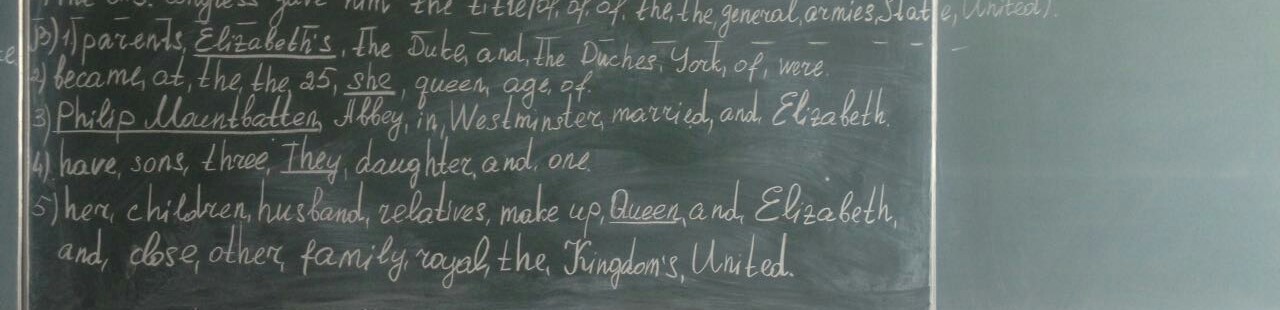 U.S. Congress gave him the title, of, of, of, the, the, general, armies, State, United).
B) 1) parents, Elizabeth's, The Duke, and, the Duches, York, of, were.
2) became, at, the, the, 25, she, queen, age, of.
3) Philip Mountbatten, Abbey, in, Westminster, married, and, Elizabeth.
4) have, sons, three, They, daughter, and, one.
5) her, children, husband, relatives, make up, Queen, and, Elizabeth,
and, close, other, family, royal, the, Kingdom's, United.